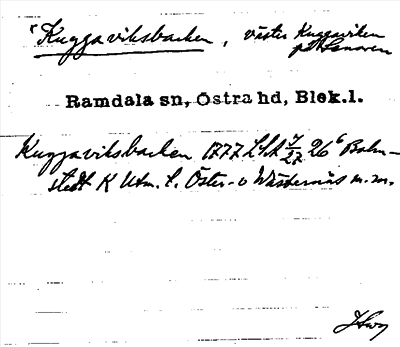 Kuggaviksbacken, väster Kuggaviken
på Senoren
Ramdala sn, Östra hd, Blek.l.
Kuggaviksbacken 1777 LSA 7/27 26⁶ Bohm-
stedt K Utm. t. Öster- o Västernäs m.m.